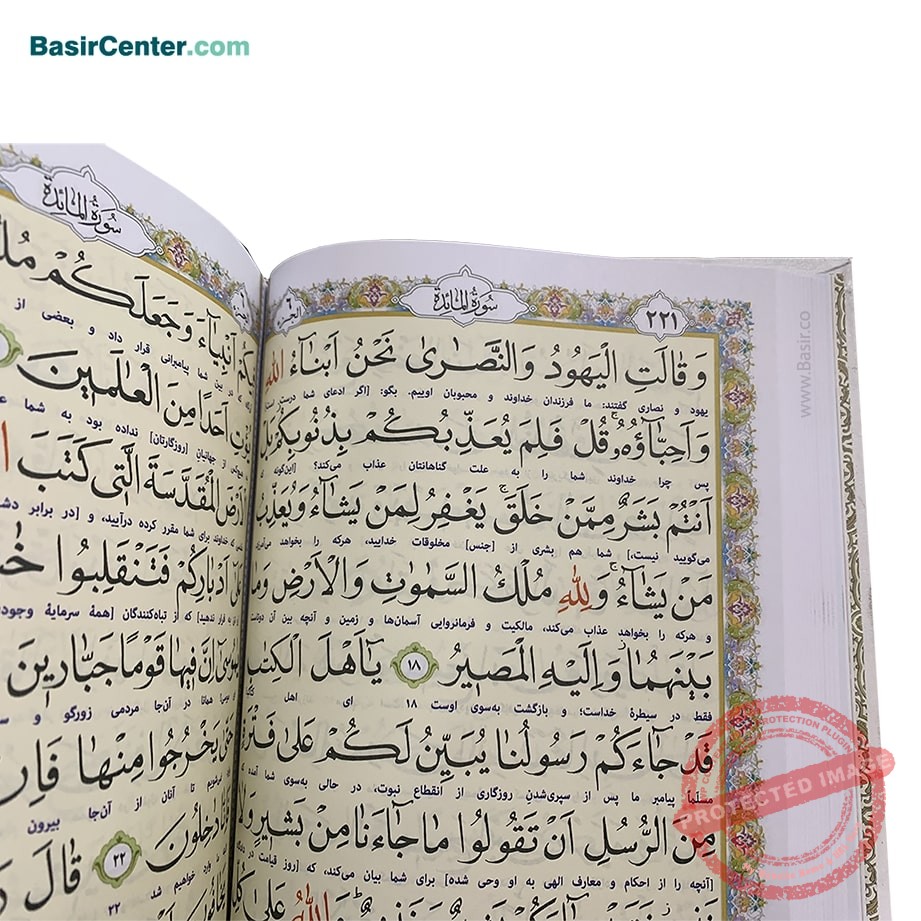 BasirCenter.com
٢٢١
سُورَةُ الْمَائِدَة
٦
وَقَالَتِ الْيَهُودُ وَالنَّصٰرٰى نَحْنُ اَبْنٰٓاءُ اللّٰهِ
یهود و نصاری گفتند: ما فرزندان خداوند و محبوبان اوییم. بگو: [اگر ادعای شما درست است]
وَاَحِبّٰٓاؤُهُۥ قُلْ فَلِمَ يُعَذِّبُكُمْ بِذُنُوبِكُمْ
پس چرا خداوند شما را به علت گناهانتان عذاب می‌کند؟ [این‌گونه
اَنْتُمْ بَشَرٌ مِمَّنْ خَلَقَ يَغْفِرُ لِمَنْ يَشٰٓاءُ وَيُعَذِّبُ
می‌گویید نیست،] شما هم بشری از [جنس] مخلوقات خدایید، هرکه را بخواهد
مَنْ يَشٰٓاءُ وَلِلّٰهِ مُلْكُ السَّمٰوٰتِ وَالْاَرْضِ وَمٰا
و هرکه را بخواهد عذاب می‌کند، مالکیت و فرمانروایی آسمان‌ها و زمین و آنچه بین آن دوست
بَيْنَهُمٰا وَاِلَيْهِ الْمَصٖيرُ ١٨ يٰٓاَهْلَ الْكِتٰبِ
فقط در سیطرهٔ خداست؛ و بازگشت به‌سوی اوست ۱۸ ای اهل
قَدْ جٰٓاءَكُمْ رَسُولُنٰا يُبَيِّنُ لَكُمْ عَلٰى فَتْرَةٍ
مسلماً پیامبر ما پس از سپری‌شدن روزگاری از انقطاع نبوت، در حالی به‌سوی شما آمده که
مِنَ الرُّسُلِ اَنْ تَقُولُوا مٰا جٰٓاءَنٰا مِنْ بَشٖيرٍ وَلٰا
[آنچه را از احکام و معارف الهی به او وحی شده] برای شما بیان می‌کند، که [روز قیامت در
سُورَةُ الْمَائِدَة
اَنْبِيٰٓاءَ وَجَعَلَكُمْ
بین شما پیامبرانی قرار داد و بعضی از
اَحَدًا مِنَ الْعٰالَمٖينَ
از جهانیان [روزگارتان] نداده بود به شما
الْمُقَدَّسَةَ الَّتٖى كَتَبَ
برای شما مقرر کرده درآیید، و [در برابر
اَدْبٰارِكُمْ فَتَنْقَلِبُوا
قرار ندهید] که از تباه‌کنندگان [همهٔ سرمایهٔ
اِنَّ فٖيهٰا قَوْمًا جَبّٰارٖينَ
همانا در آن‌جا مردمی زورگو و
يَخْرُجُوا مِنْهٰا فَاِنْ
تا آنان از آن‌جا بیرون
دٰاخِلُونَ ٢٢ قٰالَ
خواهیم شد ۲۲
www.Basir.co
PROTECTION PLUGIN
PROTECTED IMAGE